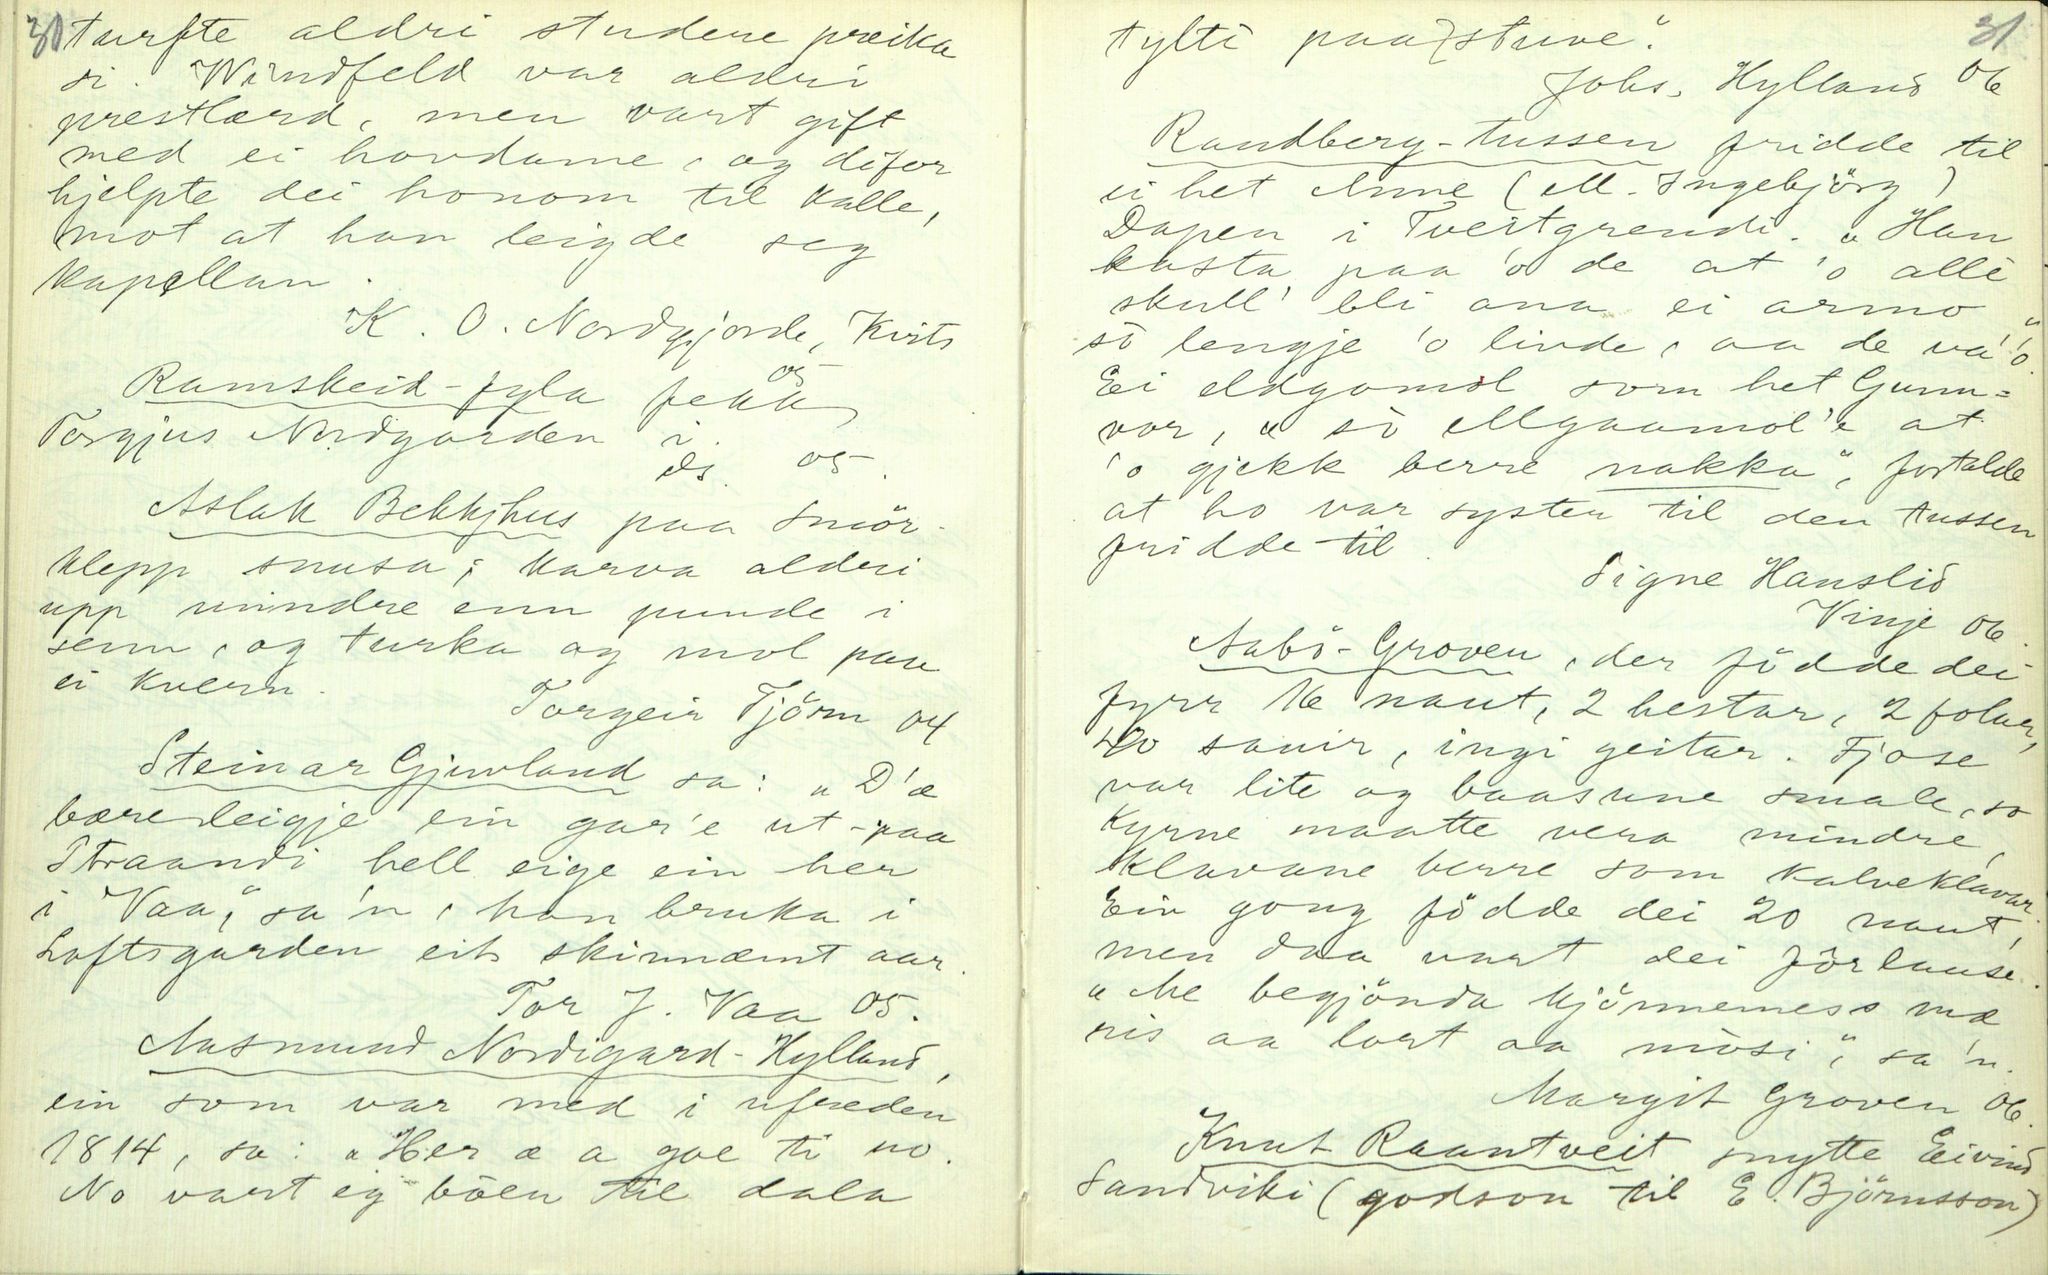 30 turfte aldri studere preika
si. Windfeld var aldri
prestlærd, men vart gift
med ei hovdame, og difor
hjelpte dei honom til kalle,
mot at han leigde seg
kapellan.
K. O. Nordgjorde, Kvits
05
Ramskeid-fyla fekk
Torgjus Nordgarden i.
ds. 05.
Aslak Bekkhus paa Smör-
klepp snusa; karva aldri
upp mindre enn punde i
senn, og turka og mol paa
ei kvern.
Torgeir Tjörn 04
Steinar Gjuvland sa: „D'æ
bære leigje ein gar'e ut-paa
Straandi hell eige ein her
i Vaa", sa'n, han bruka i
Loftsgarden eit skinnæmt aar.
Tor J. Vaa 05.
Aasmund Nordigard-Hylland,
ein som var med i ufreden
1814, sa: „Her æ a goe ti no.
No vart ej bòen til dala
31
tylti paa stuve".
Johs. Hylland 06
Randberg-tussen fridde til
ei het Anne (M. Ingebjörg)
Dapen i Tveitgrendi. „Han
kasta paa 'o de at 'o alli
skull' bli ana ei armo
sò lengje 'o livde, aa de va' 'o".
Ei eldgomol som het Gunn-
vor, „sò ellgaamol'e at
'o gjekk berre nakka", fortalde
at ho var syster til den tussen
fridde til.
Signe Hanslid
Vinje 06.
Aabö-Groven, der födde dei
fyrr 16 naut, 2 hestar, 2 folar,
40 sauir, ingi geitar. Fjose
var lite og baasane smale, so
Kyrne maatte vera mindre,
klavane berre som kalveklavar.
Ein gong födde dei 20 naut,
men daa vart dei fôrlause.
„Me begjönda kjönnemess mæ
ris aa lort aa mòsi", sa'n.
Margit Groven 06.
Knut Raantveit snytte Eivind
Sandviki (godson til E. Björnsson)